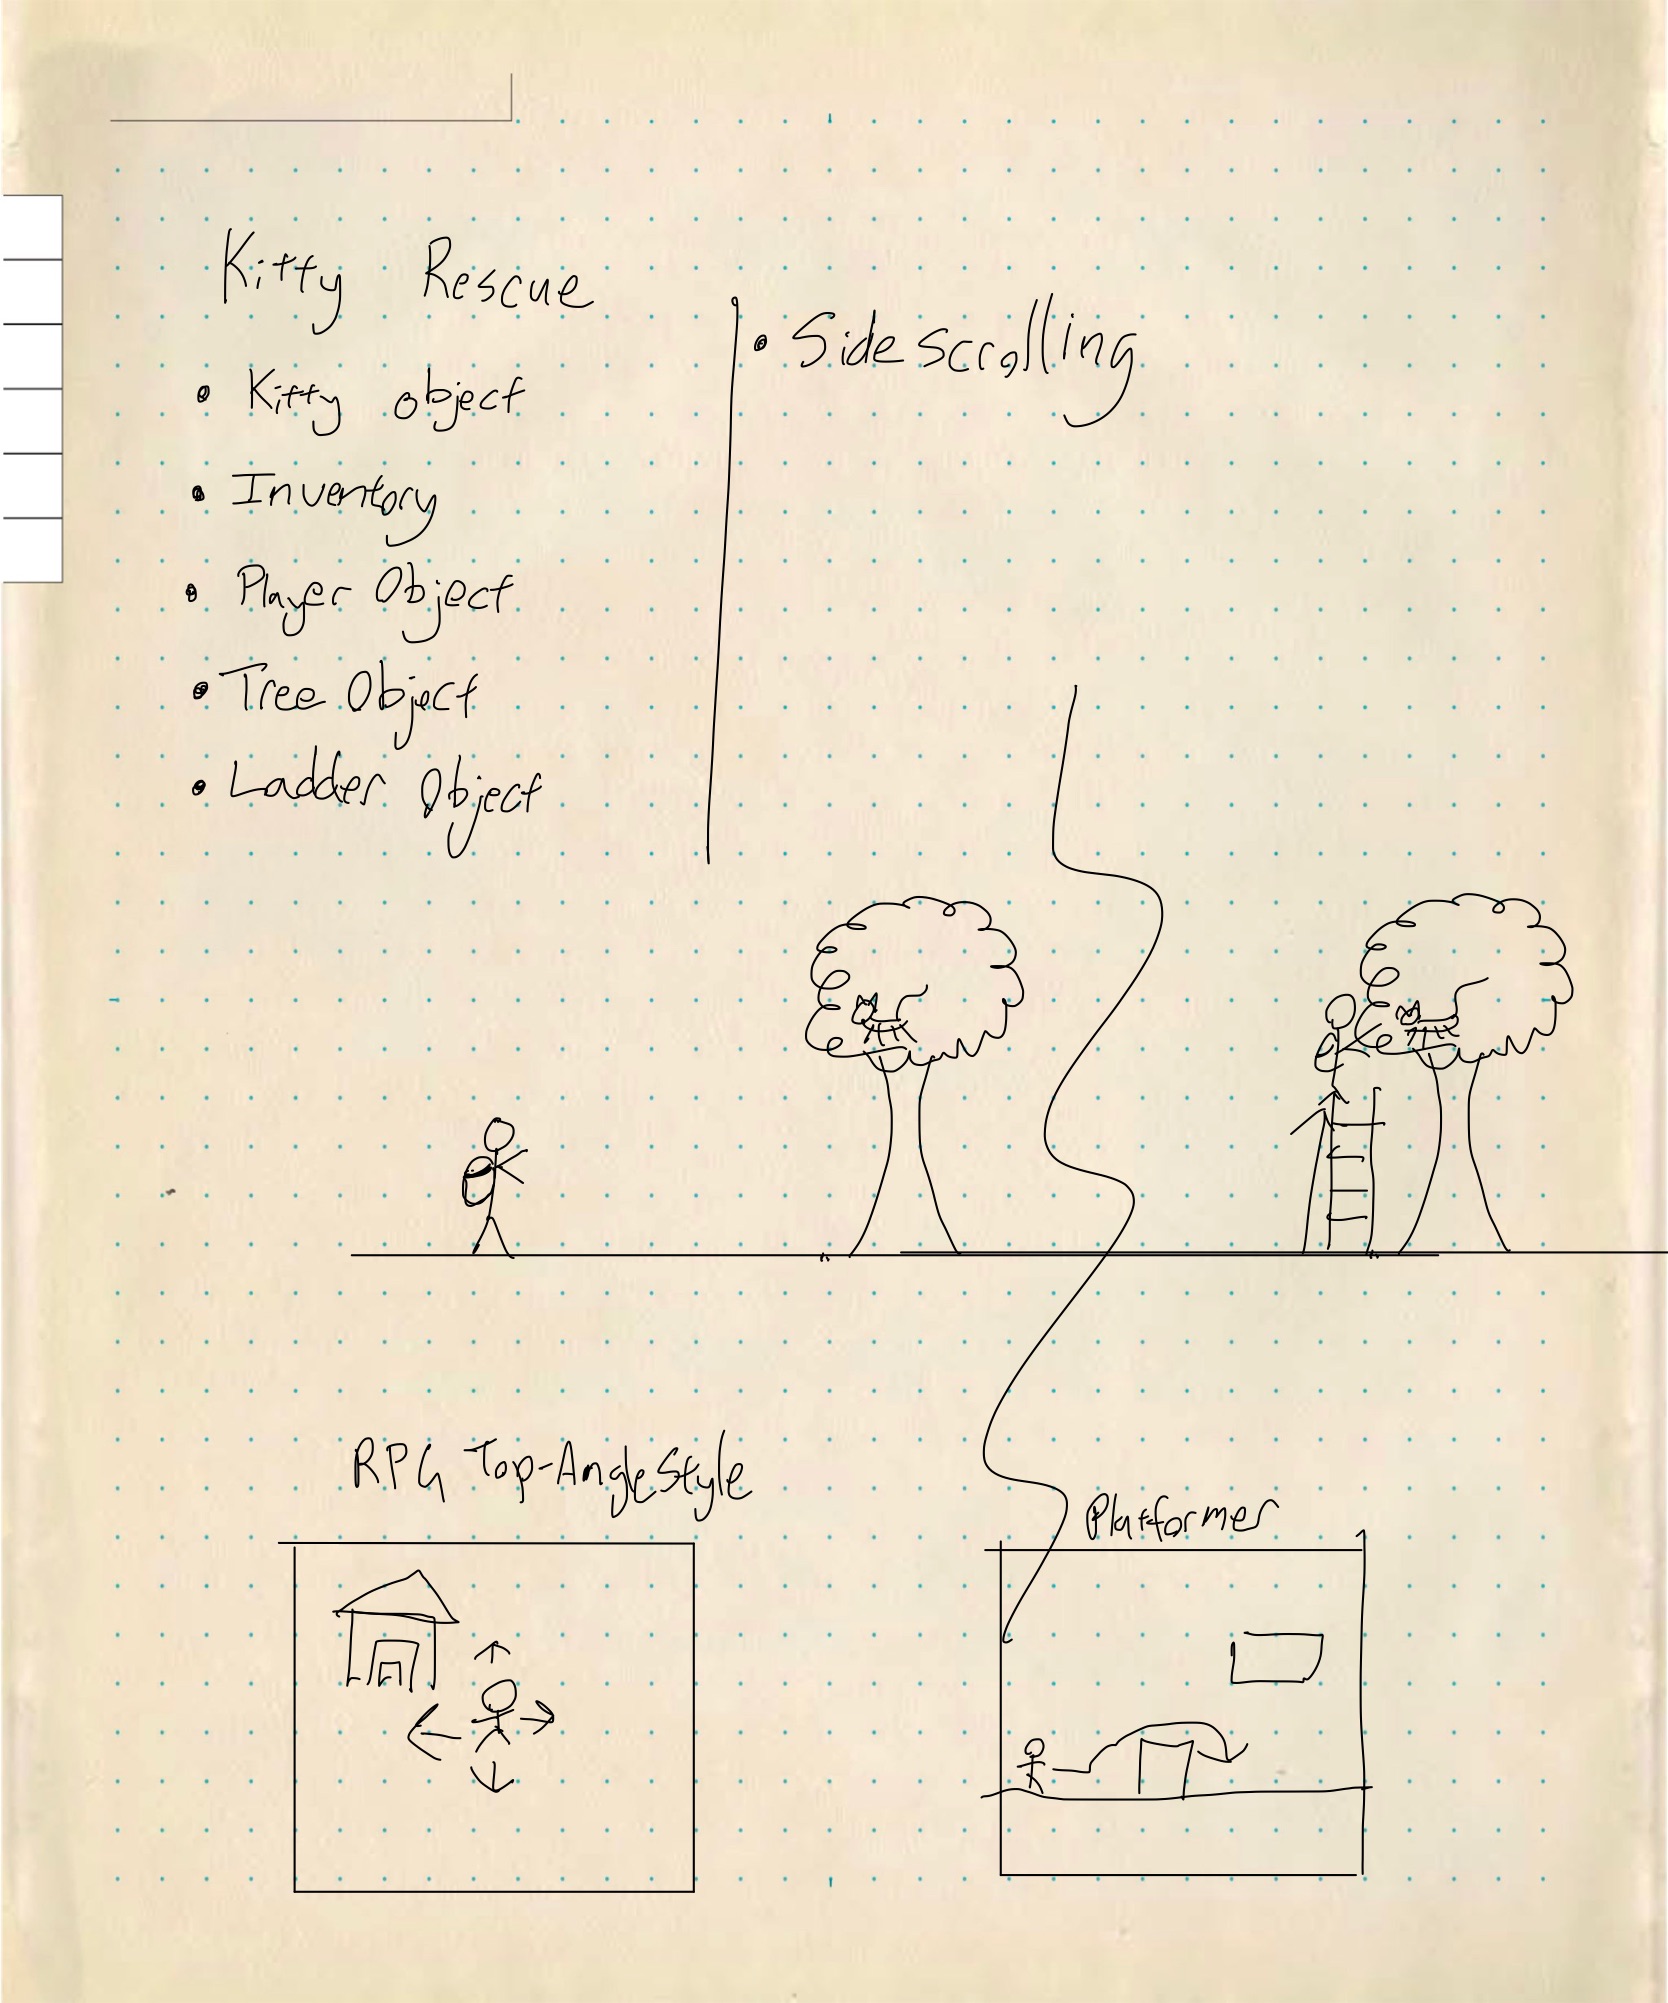 Kitty Rescue
• Kitty object
• Inventory
• Player Object
• Tree Object
• Ladder Object
• Side scrolling
RPG Top-Angle Style
Platformer